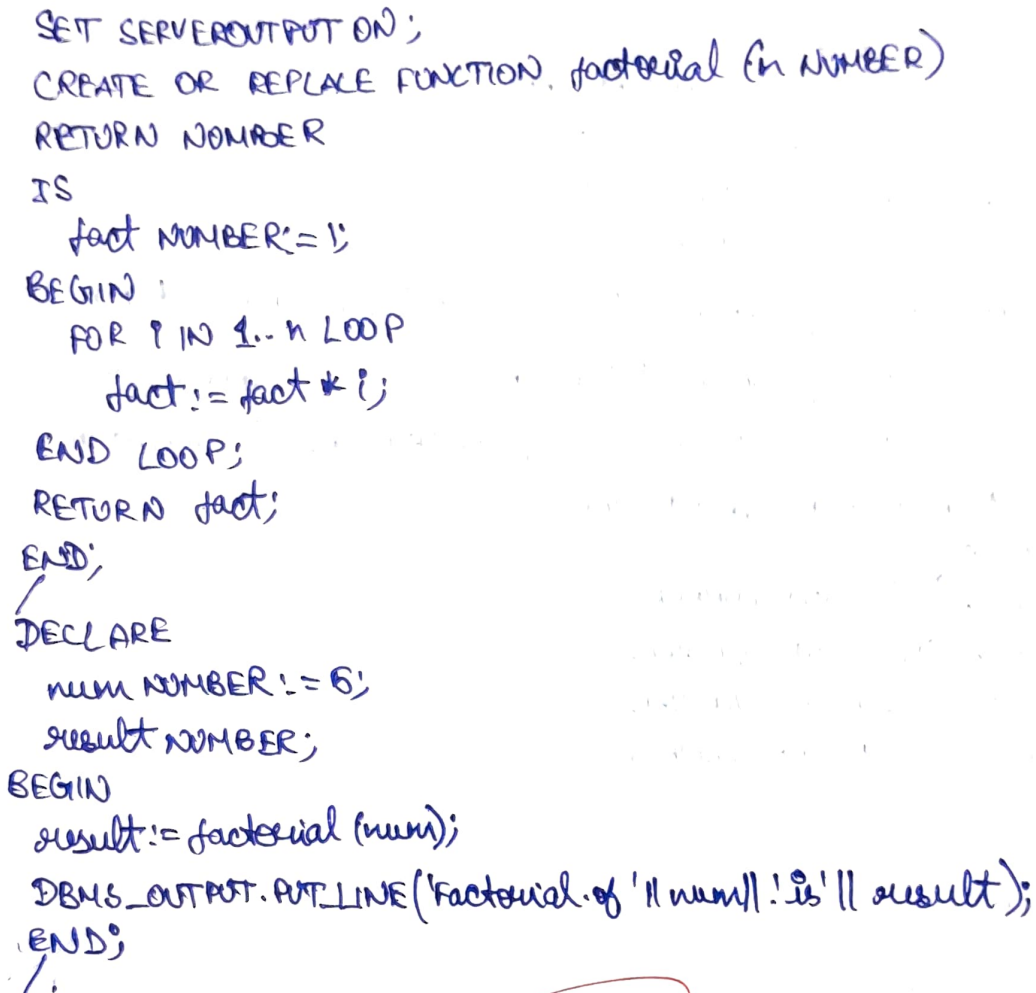 SET SERVEROUTPUT ON;
CREATE OR REPLACE FUNCTION factorial (n NUMBER)
RETURN NUMBER
IS
fact NUMBER:=1;
BEGIN
FOR i IN 1..n LOOP
fact:= fact * i;
END LOOP;
RETURN fact;
END;
/
DECLARE
num NUMBER:=6;
result NUMBER;
BEGIN
result:= factorial (num);
DBMS_OUTPUT.PUT_LINE('Factorial of '|| num||' is'|| result);
END;
/